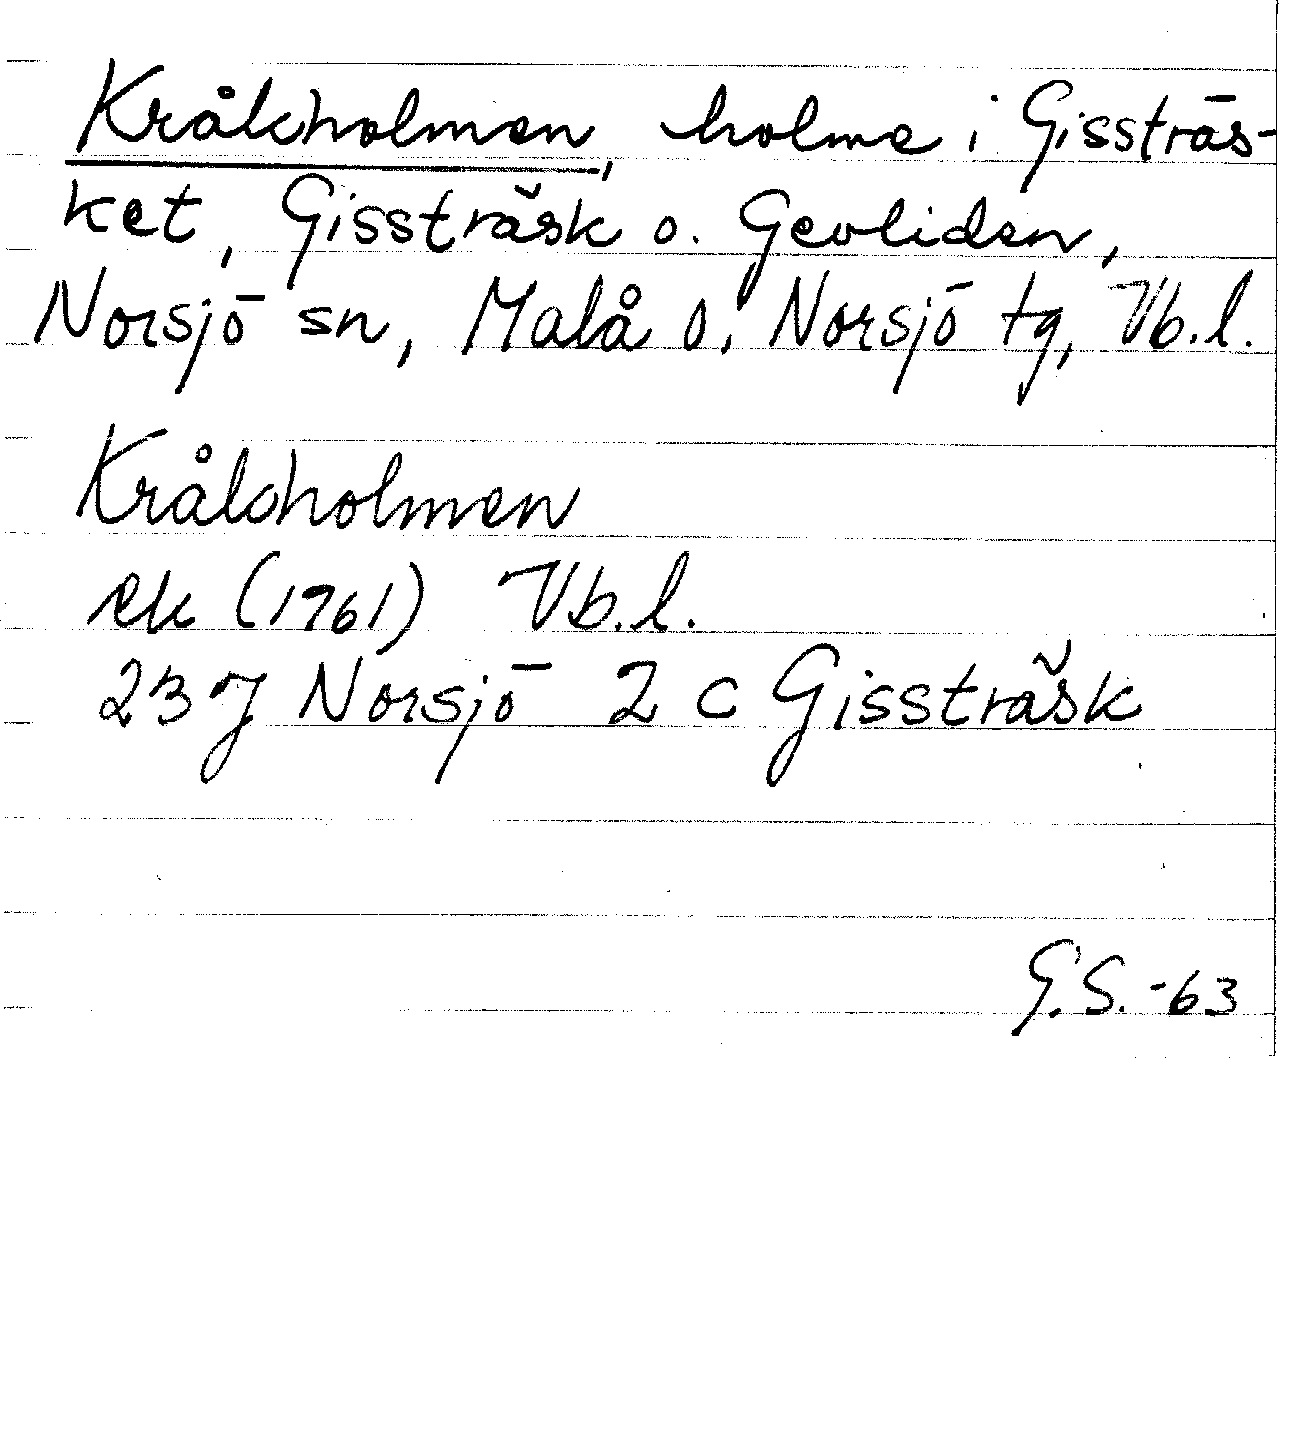 Kråkholmen, holme i Gissträs-
ket, Gissträsk o. Gevliden,
Norsjö sn, Malå o. Norsjö tg, Vb.l.
Kråkholmen
ek (1961) Vb.l.
23 J Norsjö 2 c Gissträsk
G.S. -63